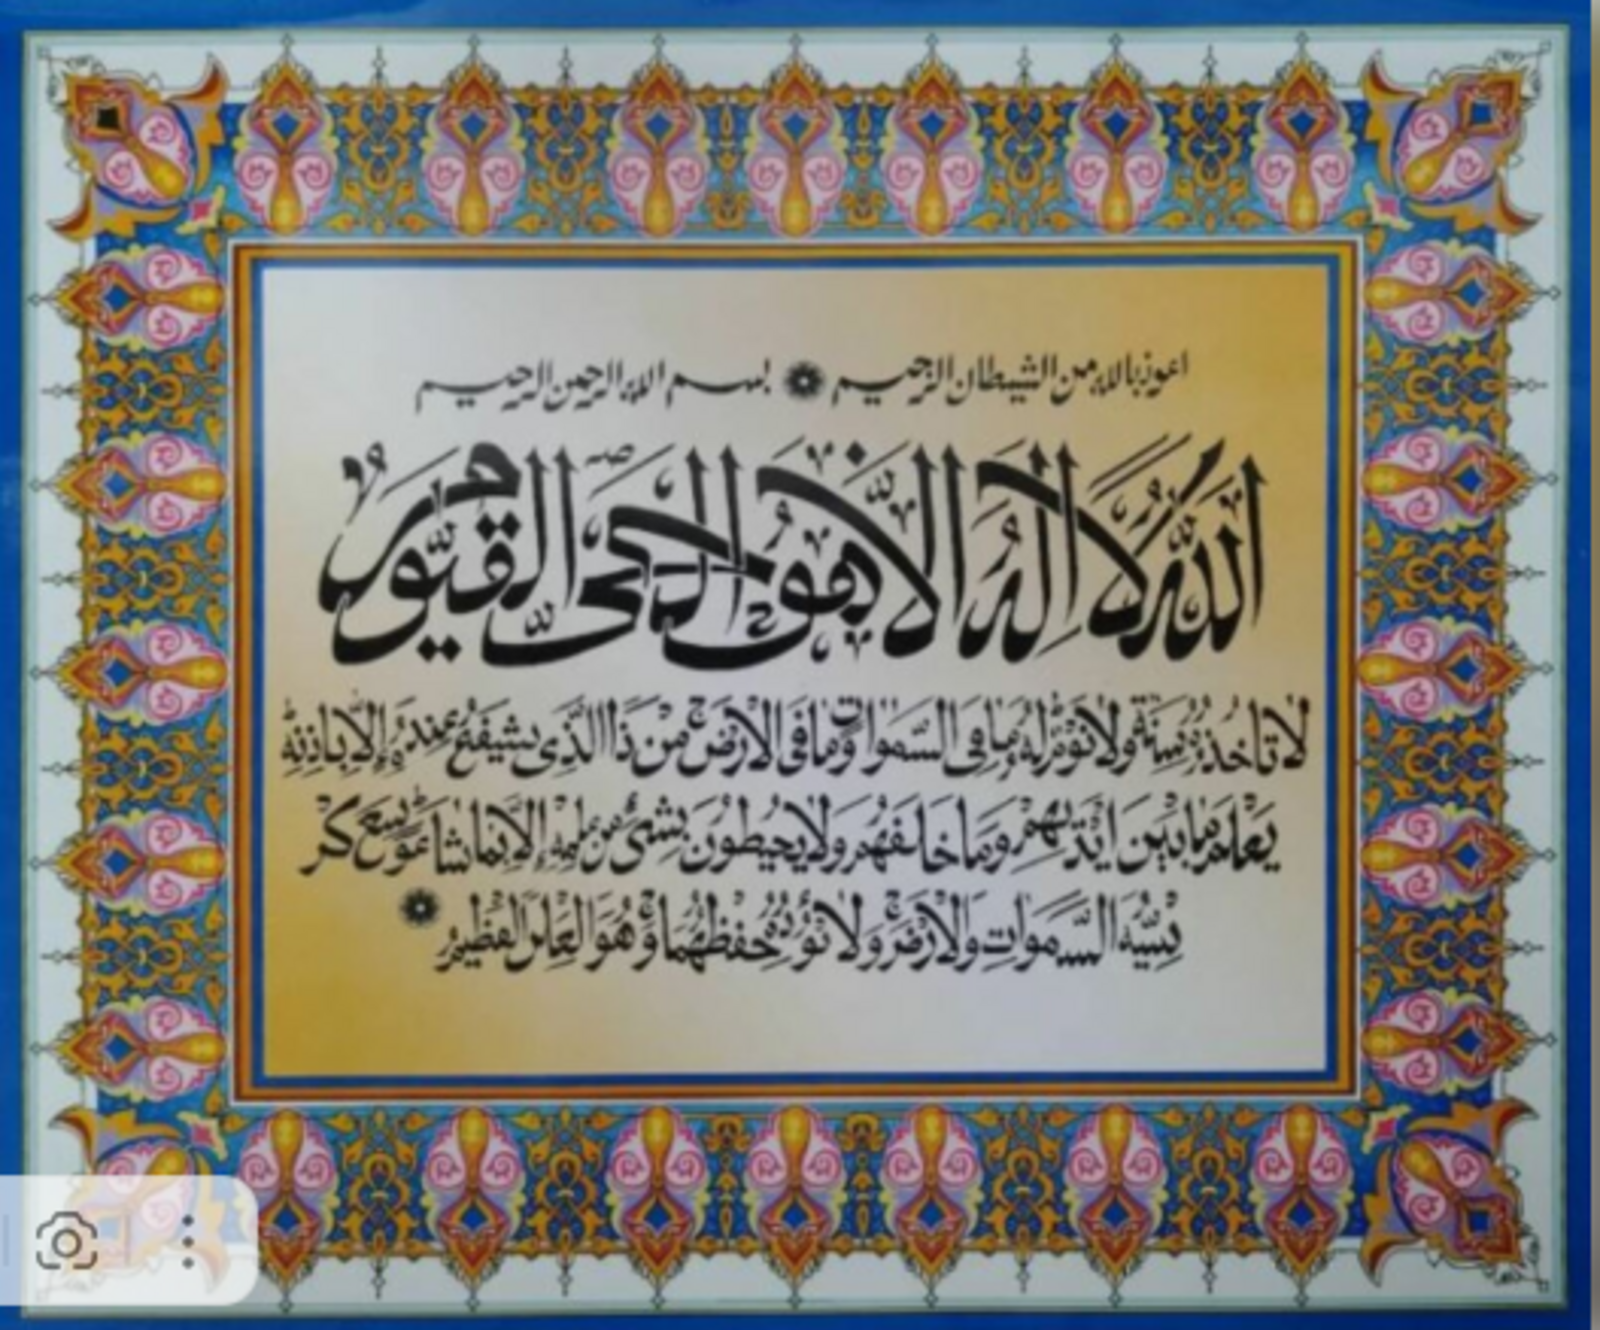 اعوذ بالله من الشيطان الرجيم ۞ بسم الله الرحمن الرحيم
اَللهُ لَا اِلٰهَ اِلَّا هُوَ اَلْحَىُّ الْقَيُّوْمُ
لَا تَاخُذُهٗ سِنَةٌ وَلَا نَوْمٌ لَهٗ مَا فِى السَّمٰوَاتِ وَمَا فِى الْاَرْضِ مَنْ ذَا الَّذِى يَشْفَعُ عِنْدَهٗ اِلَّا بِاِذْنِهٖ
يَعْلَمُ مَا بَيْنَ اَيْدِيْهِمْ وَمَا خَلْفَهُمْ وَلَا يُحِيْطُوْنَ بِشَىْءٍ مِنْ عِلْمِهٖ اِلَّا بِمَا شَاءَ وَسِعَ كُرْ
سِيُّهُ السَّمٰوَاتِ وَالْاَرْضَ وَلَا يَؤُدُهٗ حِفْظُهُمَا وَهُوَ الْعَلِىُّ الْعَظِيْمُ ۞